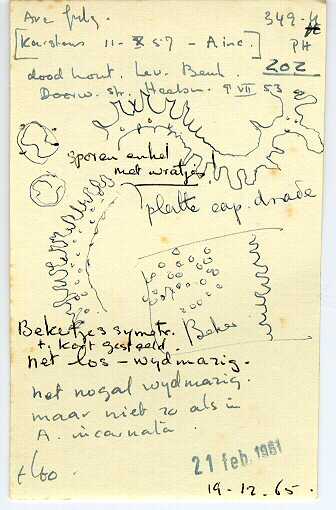 Arc fulg. 349-4
PH
[Karstens 11-X 57 - A inc.]
202
dood hout. Lev. Beuk.
Doorw. str. Heelsum. 9 VII 53
sporen enkel
met wratjes!
platte cap. draden
Beker
Bekertjes symetr.
+. kort gesteeld.
net los - wydmazig.
net nogal wydmazig.
maar niet zo als in
A. incarnata.
21 feb. 1961
19-12-65.